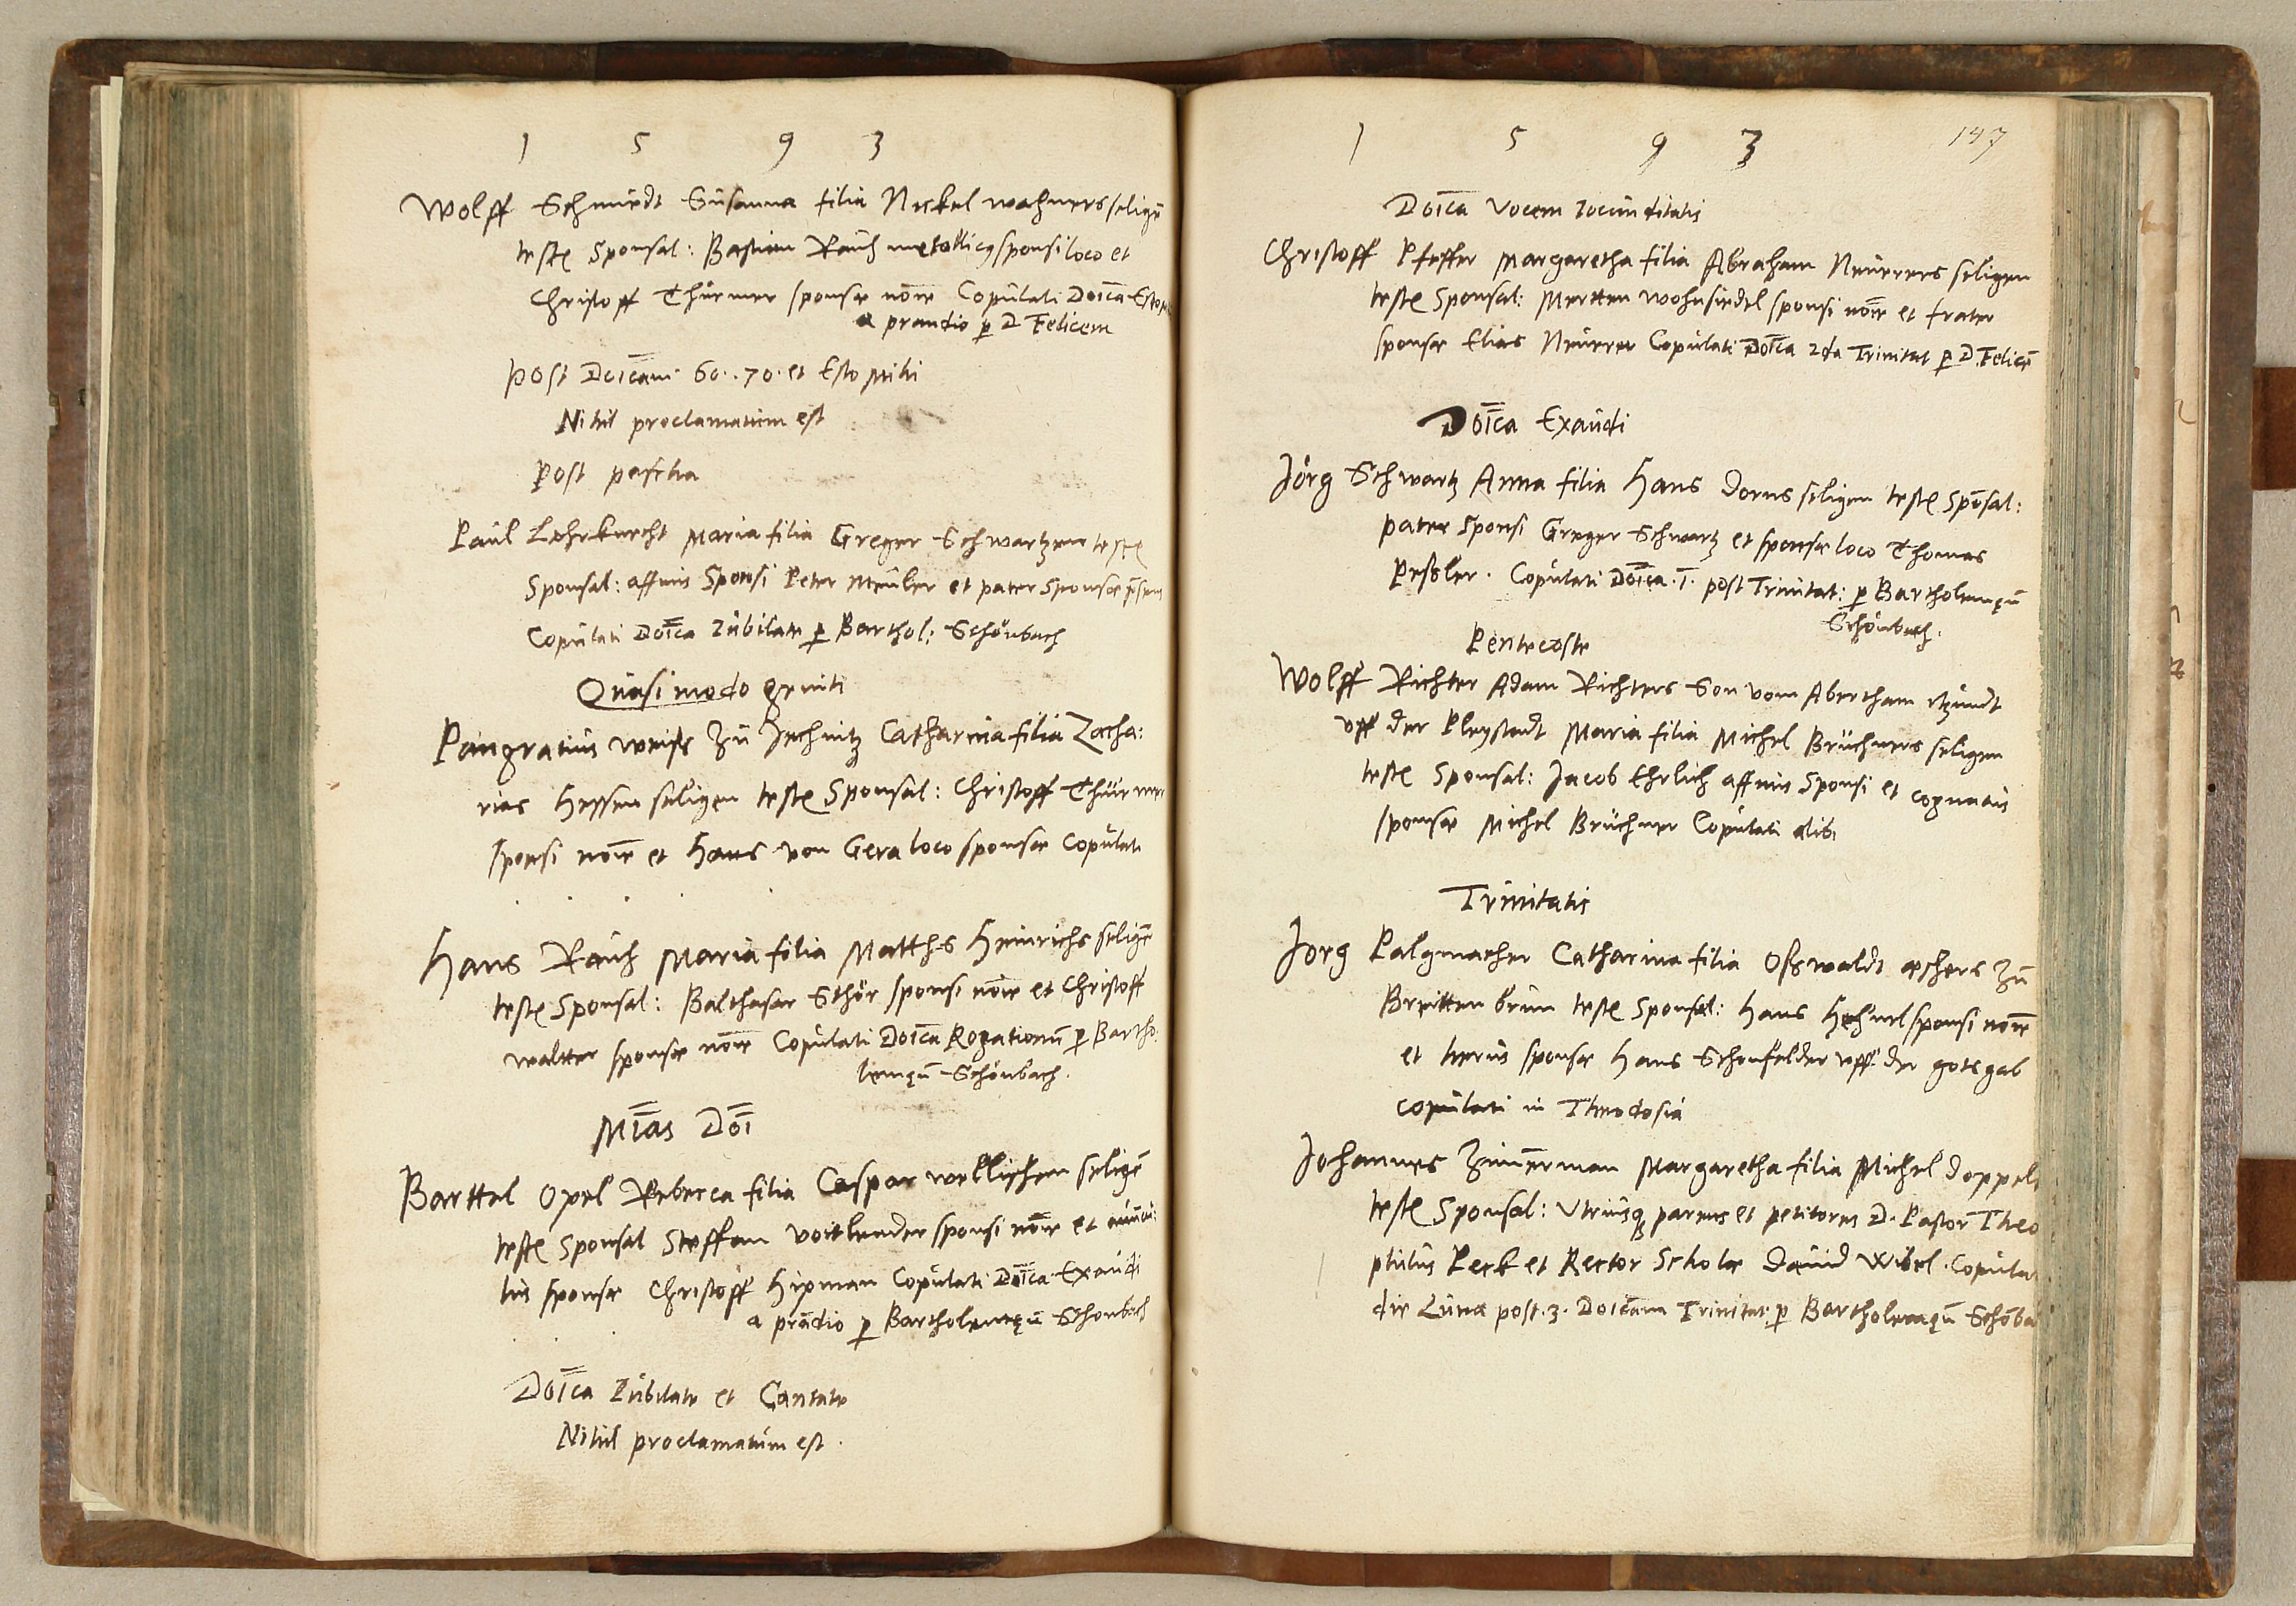 1 5 9 3
Wolff Schmiedt Susanna filia Nickel wahners selige
teste Sponsal: Bastian Rauh metallicy sponsi loco et
Christoff Thürmer sponsæ noie Copulati Doica Esto
a prandio p D Felicem
Post Doicam 60..70. et Esto Mihi
Nihil proclamatum est
Post pascha
Paul Lehrknecht Maria filia Greger Schwartzen teste
Sponsal: affinis Sponsi Peter Meuler et pater Sponsæ
Copulati Doica Iubilate p Barthol: Schönbach
Quasi modo geniti
Pangratius weiss zu Jechnitz Catharina filia Zacha:
rias Hessen seligen teste Sponsal: Christoff Thürmer
sponsi noie et Hans von Gera loco sponsæ Copulati
Hans Rauh Maria filia Matthes Heinrichs selige
teste Sponsal: Balthasar Sthör sponsi noie et Christoff
waltter sponsæ noie Copulati Doica Rogationu p Bartho
lemeu Schönbach.
Mias Doi
Barttel Opel Rebecca filia Caspar wellischen selige
teste Sponsal Steffan voitlender sponsi noie et
sponsæ Christoff Hipman Copulati Doica Exaudi
a pradio p Bartholemeu Schonbach
Doica Iubilate et Cantate
Nihil proclamatum est.
1 5 9 3
147
Doica Vocem Iocunditatis
Christoff Pfeffer Margaretha filia Abraham Neurers seligen
teste Sponsal: Mertten wohnsiedel sponsi noie et frater
sponsæ Elias Neurer Copulati Doica 2da Trinitat p D. Felice
Doica Exaudi
Jörg Schwartz Anna filia Hans dorns seligen teste Sposal:
pater Sponsi Greger Schwartz et sponsæ loco Thomas
Pessler. Copulati Doica .1. post Trinitat: p Bartholemeu
Schönbach.
Pentecoste
Wolff Richter Adam Richters Son vom Abertham itzundt
vff der Pleystadt Maria filia Michel Brüchners seligen
teste Sponsal: Jacob Ehrlich affinis Sponsi et cognatus
sponsæ Michel Brüchner Copulati alibi
Trinitatis
Jorg Palgmacher Catharina filia Osswaldt æschers zu
Breittenbrun teste Sponsal: Hans Hehnel sponsi noie
et herus sponsæ Hans Schenfelder vff der gots gab
copulati in Theodosia
Johannes Zimerman Margaretha filia Michel doppel
teste Sponsal: Utriusq parens et petitores D. Pastor Theo
philus Peck et Rector Scholæ Dauid Wibel. Copula
die Lunæ post .3. Doicam Trinitat: p Bartholemeu Schöba